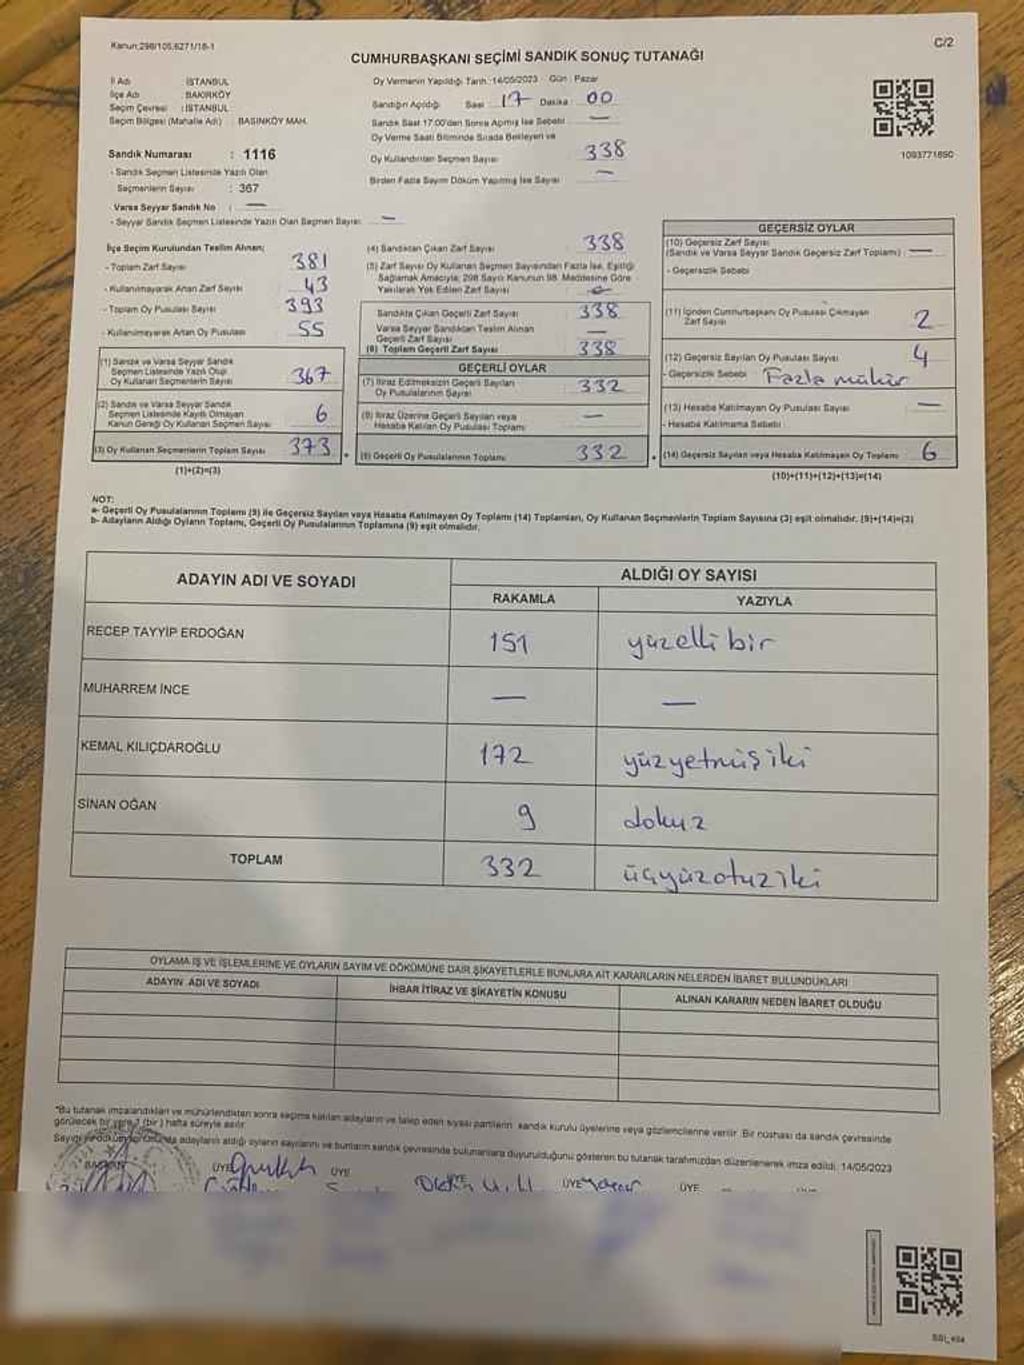 Kanun:298/105,6271/18-1
C/2
CUMHURBAŞKANI SEÇİMİ SANDIK SONUÇ TUTANAĞI
İl Adı : İSTANBUL
İlçe Adı : BAKIRKÖY
Seçim Çevresi : İSTANBUL
Seçim Bölgesi (Mahalle Adı) : BASINKÖY MAH.
Oy Vermenin Yapıldığı Tarih : 14/05/2023 Gün : Pazar
Sandığın Açıldığı Saat : 17 Dakika : 00
Sandık Saat 17:00'den Sonra Açılmış İse Sebebi : —
Oy Verme Saati Bitiminde Sırada Bekleyen ve
Oy Kullandırılan Seçmen Sayısı 338
Birden Fazla Sayım Döküm Yapılmış İse Sayısı —
1093771850
Sandık Numarası : 1116
- Sandık Seçmen Listesinde Yazılı Olan
Seçmenlerin Sayısı : 367
- Varsa Seyyar Sandık No : —
- Seyyar Sandık Seçmen Listesinde Yazılı Olan Seçmen Sayısı —
İlçe Seçim Kurulundan Teslim Alınan;
- Toplam Zarf Sayısı 381
- Kullanılmayarak Artan Zarf Sayısı 43
- Toplam Oy Pusulası Sayısı 393
- Kullanılmayarak Artan Oy Pusulası 55
(1) Sandık ve Varsa Seyyar Sandık
Seçmen Listesinde Yazılı Olup
Oy Kullanan Seçmenlerin Sayısı 367
(2) Sandık ve Varsa Seyyar Sandık
Seçmen Listesinde Kayıtlı Olmayan
Kanun Gereği Oy Kullanan Seçmen Sayısı 6
(3) Oy Kullanan Seçmenlerin Toplam Sayısı 373
(1)+(2)=(3)
(4) Sandıktan Çıkan Zarf Sayısı 338
(5) Zarf Sayısı Oy Kullanan Seçmen Sayısından Fazla İse, Eşitliği
Sağlamak Amacıyla; 298 Sayılı Kanunun 98. Maddesine Göre
Yakılarak Yok Edilen Zarf Sayısı
Sandıkta Çıkan Geçerli Zarf Sayısı 338
Varsa Seyyar Sandıktan Teslim Alınan
Geçerli Zarf Sayısı —
(6) Toplam Geçerli Zarf Sayısı 338
GEÇERLİ OYLAR
(7) İtiraz Edilmeksizin Geçerli Sayılan
Oy Pusulalarının Sayısı 332
(8) İtiraz Üzerine Geçerli Sayılan veya
Hesaba Katılan Oy Pusulası Toplamı —
(9) Geçerli Oy Pusulalarının Toplamı 332
GEÇERSİZ OYLAR
(10) Geçersiz Zarf Sayısı
(Sandık ve Varsa Seyyar Sandık Geçersiz Zarf Toplamı) —
- Geçersizlik Sebebi
(11) İçinden Cumhurbaşkanı Oy Pusulası Çıkmayan
Zarf Sayısı 2
(12) Geçersiz Sayılan Oy Pusulası Sayısı 4
- Geçersizlik Sebebi Fazla mühür
(13) Hesaba Katılmayan Oy Pusulası Sayısı —
- Hesaba Katılmama Sebebi
(14) Geçersiz Sayılan veya Hesaba Katılmayan Oy Toplamı 6
(10)+(11)+(12)+(13)=(14)
NOT:
a- Geçerli Oy Pusulalarının Toplamı (9) ile Geçersiz Sayılan veya Hesaba Katılmayan Oy Toplamı (14) Toplamları, Oy Kullanan Seçmenlerin Toplam Sayısına (3) eşit olmalıdır. (9)+(14)=(3)
b- Adayların Aldığı Oyların Toplamı, Geçerli Oy Pusulalarının Toplamına (9) eşit olmalıdır.
ADAYIN ADI VE SOYADI
ALDIĞI OY SAYISI
RAKAMLA YAZIYLA
RECEP TAYYİP ERDOĞAN 151 yüzelli bir
MUHARREM İNCE — —
KEMAL KILIÇDAROĞLU 172 yüzyetmiş iki
SİNAN OĞAN 9 dokuz
TOPLAM 332 üçyüzotuz iki
OYLAMA İŞ VE İŞLEMLERİNE VE OYLARIN SAYIM VE DÖKÜMÜNE DAİR ŞİKAYETLERLE BUNLARA AİT KARARLARIN NELERDEN İBARET BULUNDUKLARI
ADAYIN ADI VE SOYADI
İHBAR İTİRAZ VE ŞİKAYETİN KONUSU
ALINAN KARARIN NEDEN İBARET OLDUĞU
*Bu tutanak imzalandıktan ve mühürlendikten sonra seçime katılan adayların ve talep eden siyasi partilerin sandık kurulu üyelerine veya gözlemcilerine verilir. Bir nüshası da sandık çevresinde
görülecek bir yere 1 (bir) hafta süreyle asılır.
adayların aldığı oyların sayılarını ve bunların sandık çevresinde bulunanlara duyurulduğunu gösteren bu tutanak tarafımızdan düzenlenerek imza edildi. 14/05/2023
BAŞKAN ÜYE ÜYE ÜYE ÜYE